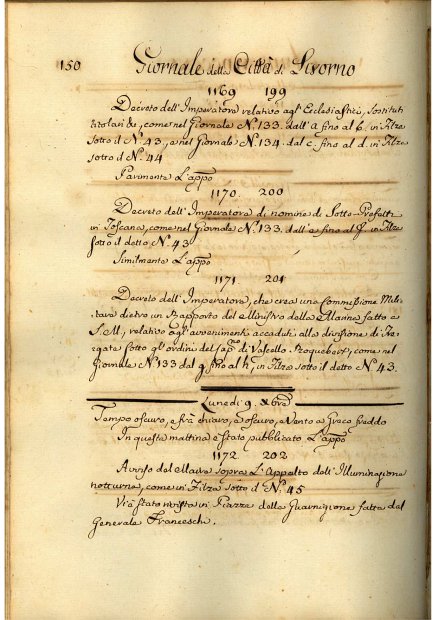 150 Giornale della Città di Livorno
1169 199
Decreto dell'Imperatore relativo agl'Ecclesiastici, sostituti
titolari &c, come nel Giornale N.° 133. dall'a fino al b. in Filza
sotto d N.° 43, e nel Giornale N.° 134. dal c. fino al d. in Filza
sotto d N.° 44
Parimente L'appo
1170 200
Decreto dell'Imperatore di nomine di Sotto-Prefetti
in Toscana, come nel Giornale N.° 133. dall'e fino al f. in Filza
sotto il detto N.° 43
Similmente L'appo
1171 201
Decreto dell'Imperatore, che crea una Commissione Mili-
tare dietro un Rapporto del Ministro della Marina fatto a
S. M., relativo agl'avvenimenti accaduti alla divisione di Fre-
gate sotto gli ordini del Cap.° di Vascello Roquebert, come nel
Giornale N.° 133 dal g fino al h, in Filza sotto il detto N.° 43.
Lunedì 9. Xbre
Tempo oscuro, e frà chiaro, e oscuro, e Vento a Greco freddo
In questa mattina è stato pubblicato L'appo
1172 202
Avviso del Maire sopra L'Appalto dell'Illuminazione
notturna, come in Filza sotto d N.° 45
Vi è stato rivista in Piazza della Guarnigione fatta dal
Generale Franceschi.